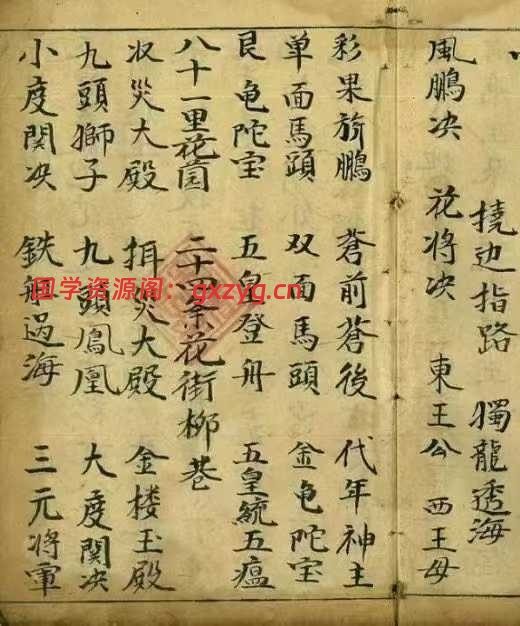 撓边指路 獨龍透海
風鵬决 花将决 東王公 西王母
彩果旂鵬 蒼前蒼後 代年神主
单面馬頭 双面馬頭 金龟陀宝
艮龟陀宝 五皇登舟 五皇統五瘟
八十一里花园 二十四条花街柳巷
収災大殿 挕災大殿 金楼玉殿
九頭獅子 九頭鳳凰 大度関决
小度関决 鉄船过海 三元将軍
国学资源阁：gxzyg.cn